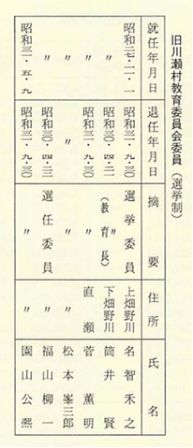 旧川瀬村教育委員会委員(選挙制)
就任年月日 退任年月日 摘要 住所 氏名
昭和二七・一一・一 昭和三一・九・三〇 選挙委員 上畑野川 名智禾之
〃 下畑野川 筒井賢
〃 昭和三一・九・三〇 (教育長) 直瀬 菅薫明
〃 〃 〃 〃 松本峯三郎
〃 選任委員 〃 福山柳一
昭和三一・五・九 昭和三一・九・三〇 〃 〃 園山公熙